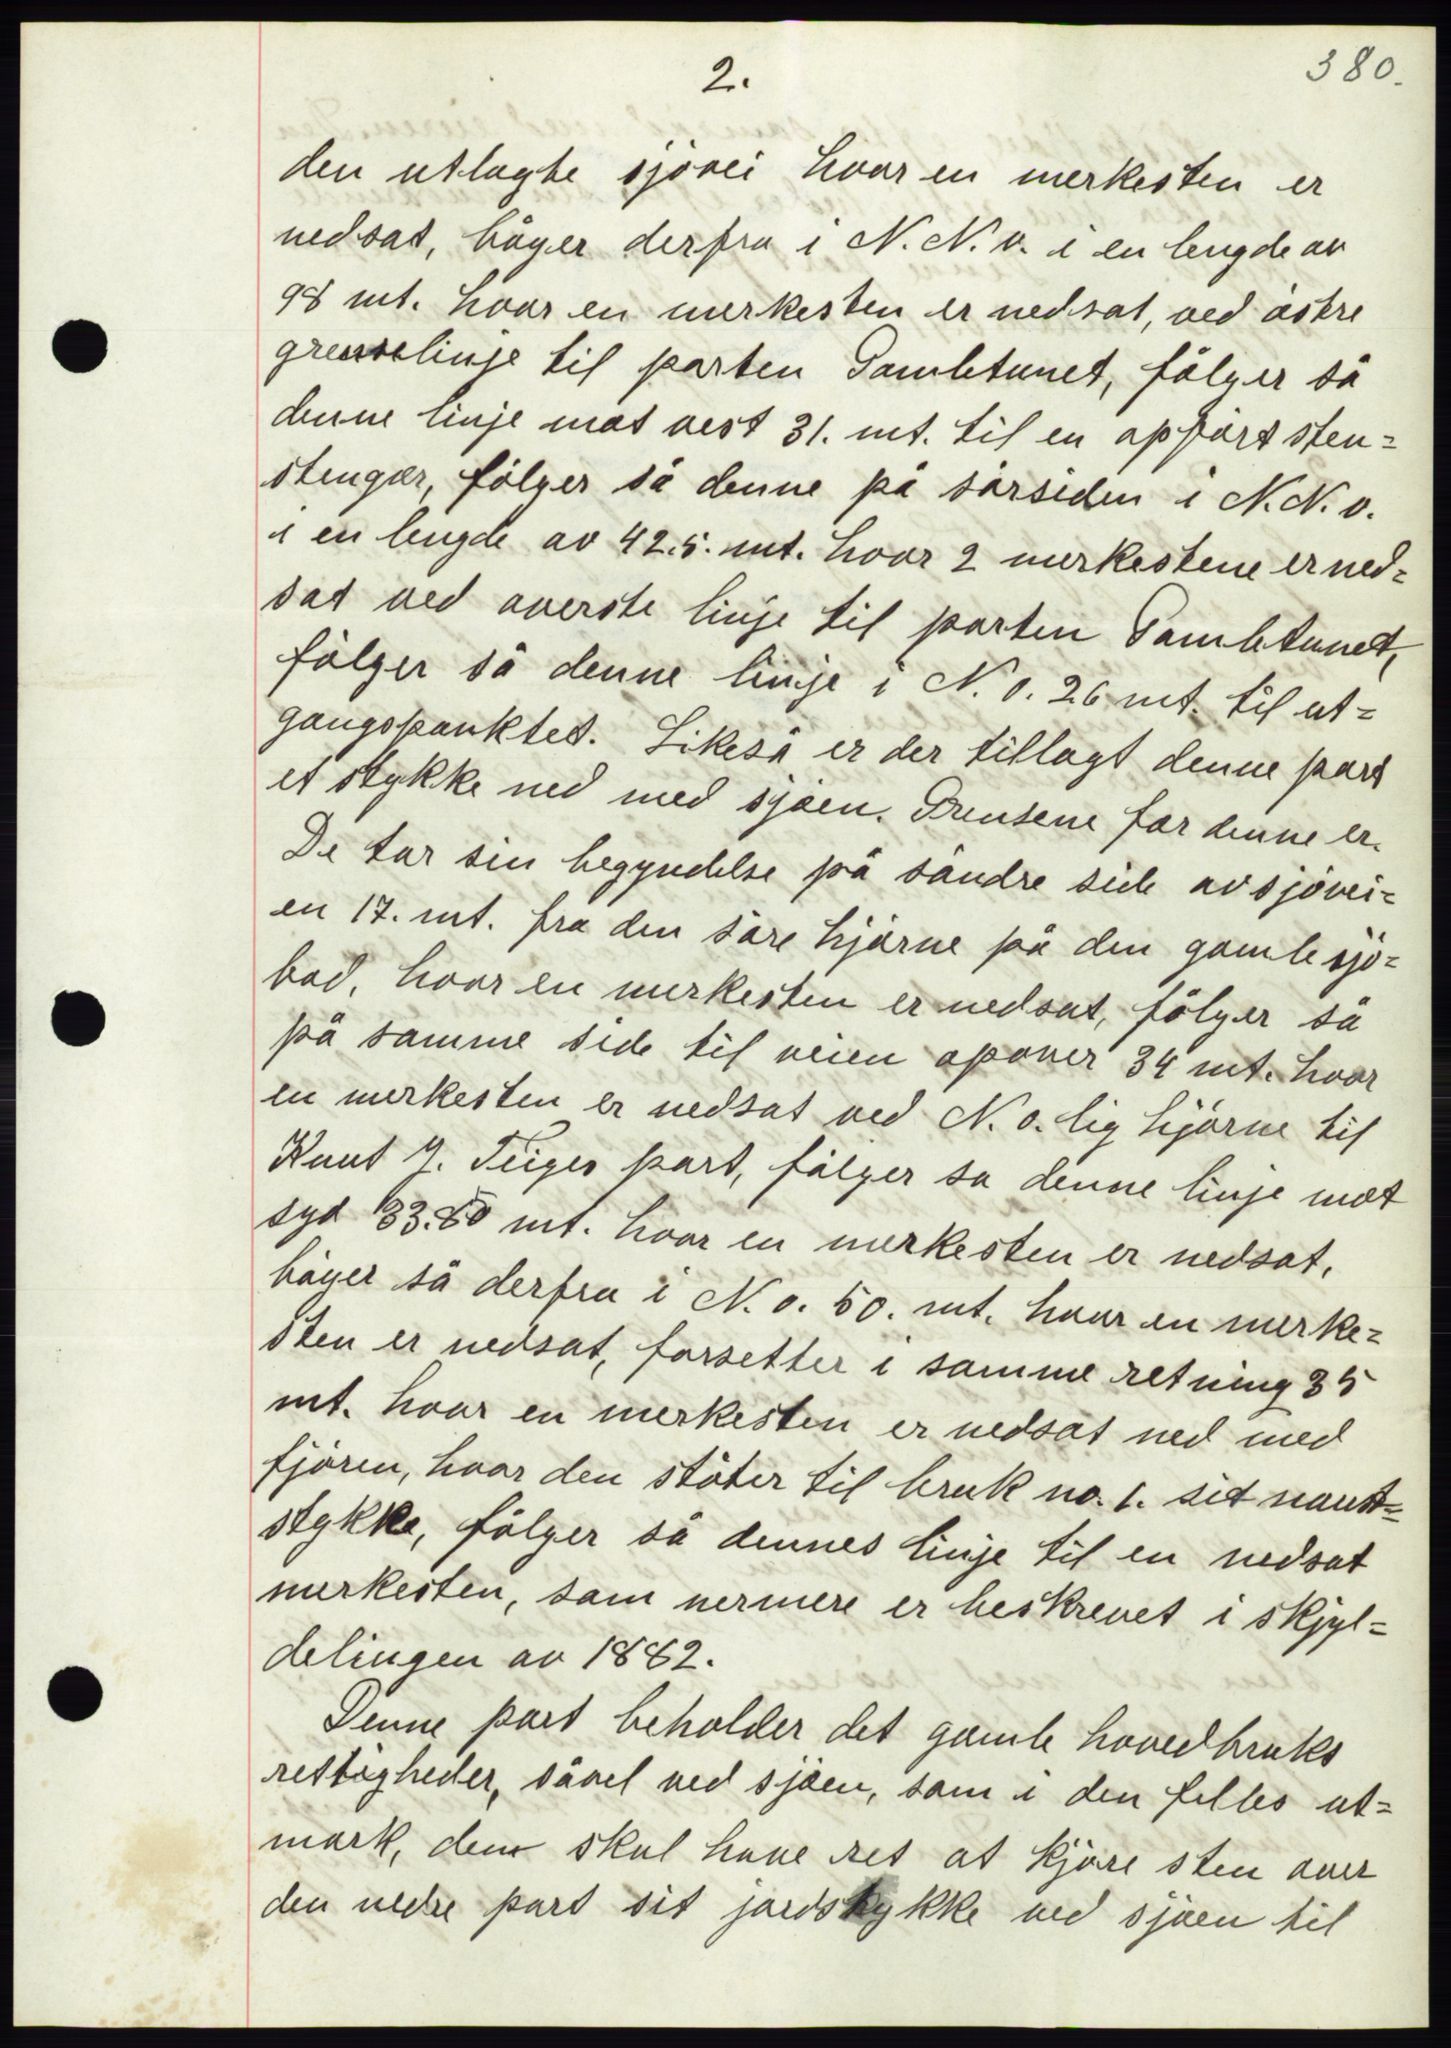 2.
380.
den utlagte sjövei hvor en merkesten er
nedsat, böyer derfra i N. N. v. i en lengde av
98 mt. hvor en merkesten er nedsat, ved östre
grenselinje til parten Gamletunet, fölger så
denne linje mot vest 31. mt. til en opfört sten=
stengær, fölger så denne på sörsiden i N. N. o.
i en lengde av 42.5. mt. hvor 2 merkestene er ned=
sat ved averste linje til parten Gamletunet,
fölger så denne linje i N. o. 26 mt. til ut=
gangspunktet. Likeså er der tillagt denne part
et stykke ned med sjöen. Grensene for denne er.
De tar sin begyndelse på söndre side av sjövei=
en 17. mt. fra den söre hjörne på den gamle sjö=
bod, hvor en merkesten er nedsat, fölger så
på samme side til veien opover 34 mt. hvor
en merkesten er nedsat ved N. o. lig hjörne til
Knut J. Teiges part, fölger sa denne linje mot
syd 33.50 mt. hvor en merkesten er nedsat.
böyer så derfra i N. o. 50. mt. hvor en merke=
sten er nedsat, forsetter i samme retning 35
mt. hvor en merkesten er nedsat ned med
fjören, hvor den stöter til bruk no. 1. sit naust=
stykke, fölger så dennes linje til en nedsat
merkesten, som nermere er beskrevet i skjyl=
delingen av 1882.
Denne part beholder det gamle hovedbruks
rettigheder, såvel ved sjöen, som i den felles ut=
mark, den skal have ret at kjöre sten over
den nedre part sit jordstykke ved sjöen til